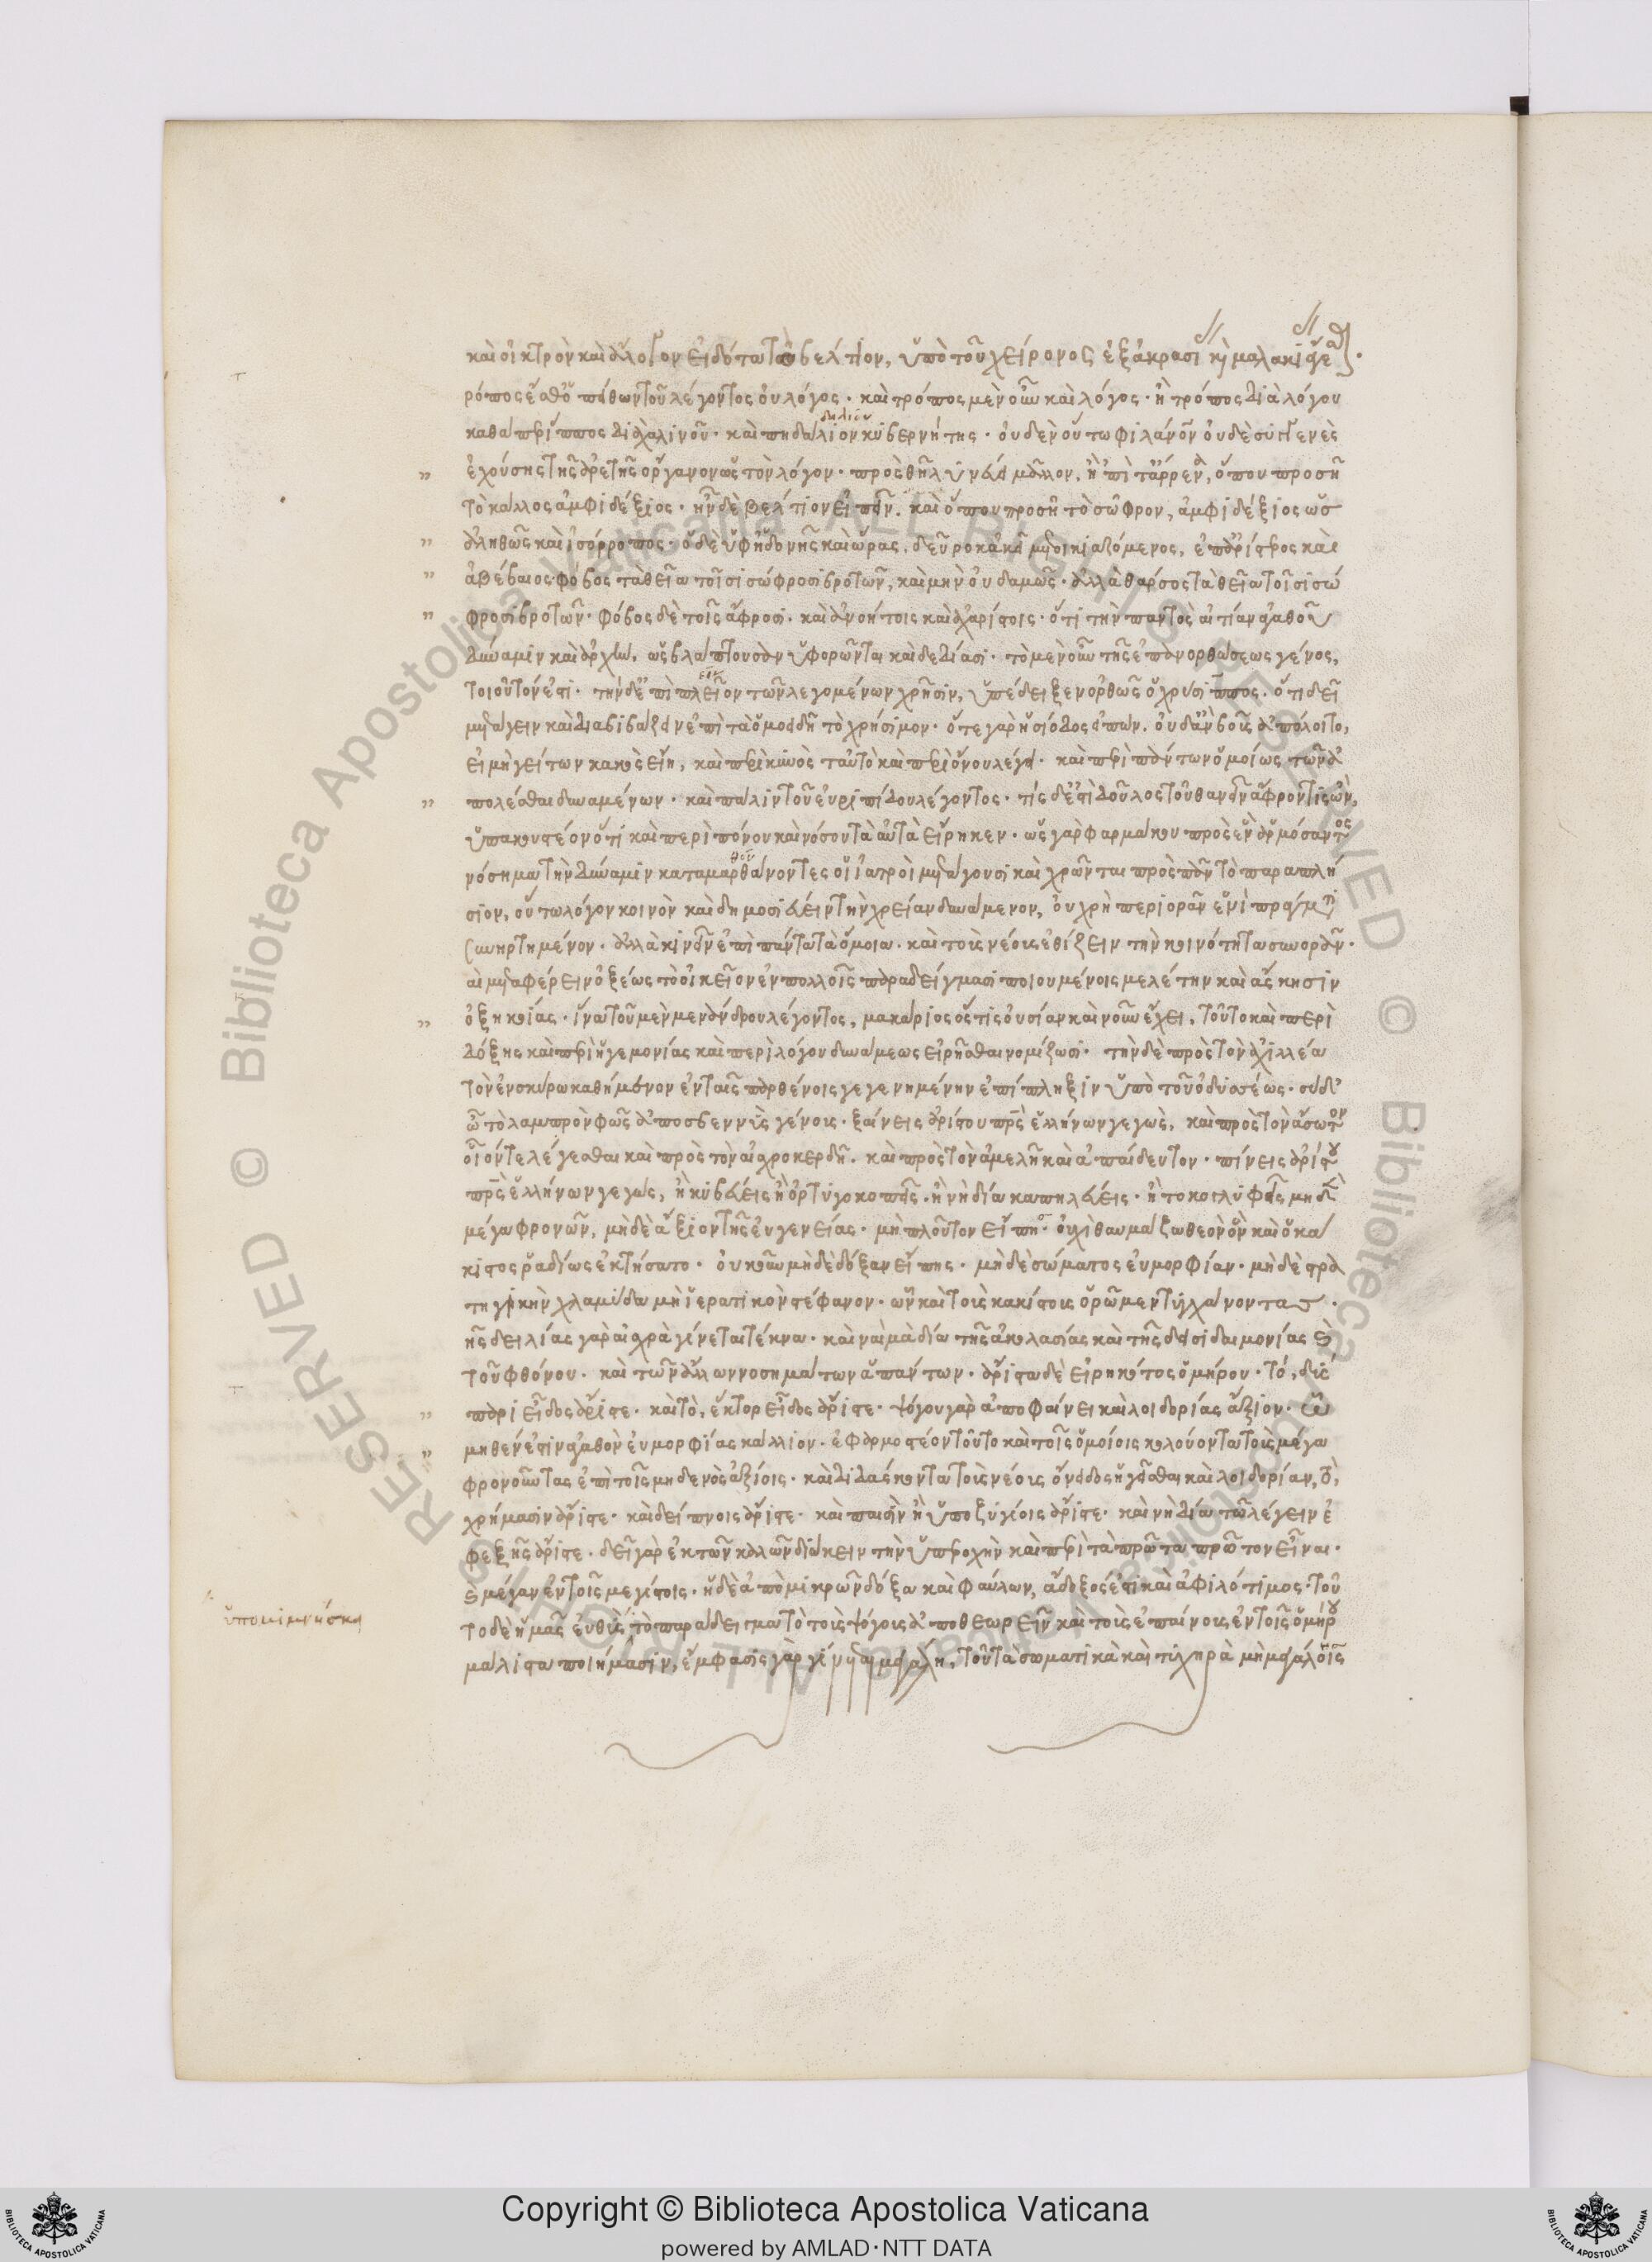 καὶ οἰκτρὸν καὶ ἄλογον εἰδότα τὸ βέλτιον, ὑπὸ τοῦ χείρονος ἐξ ἀκρασί κ μαλακί
ρόπος ἔσθ ὁ πείθων τοῦ λέγοντος οὐ λόγος. καὶ τρόπος μὲν οὖν καὶ λόγος. ἢ τρόπος διὰ λόγου
καθάπερ ἱππος διαχαλινοῦ. καὶ πηδαλίον κυβερνήτης. οὐδὲν οὕτω φιλάνον οὐδὲ συγγενὲς
ἐχούσης τῆς ἀρετῆς ὄργανον ὡς τὸν λόγον. πρὸς θῆλυ νεύει μᾶλλον, ἢ πὶ τἄρρενα, ὅπου προσῆ
τὸ κάλλος ἀμφιδέξιος. ἦν δὲ βελτίον εἰπεῖν. καὶ ὅπου προσῆ τὸ σῶφρον, ἀμφιδέξιος ὡς
ἀληθῶς καὶ ἰσόρροπος. ὁ δὲ ὑφ ἡδονῆς καὶ ὥρας, δεῦρο κἀκεῖ μετοικιαζόμενος, ἐπαρίστερος καὶ
ἀβέβαιος. φόβος τὰ θεῖα τοῖσι σώφροσι βροτῶν, καὶ μὴν οὐδαμῶς. ἀλλὰ θάρσος τὰ θεῖα τοῖσι σώ
φροσι βροτῶν. φόβος δὲ τοῖς ἄφροσι. καὶ ἀνοήτοις καὶ ἀχαρίστοις. ὅτι τὴν παντὸς αἰτίαν ἀγαθοῦ
δύναμιν καὶ ἀρχὴν, ὡς βλάπτουσαν ὑφορῶνται καὶ δεδίασι. τὸ μὲν οὖν τῆς ἐπανορθώσεως γένος,
τοιοῦτόν ἐστι. τὴν δ ἐπὶ πλεῖον τῶν λεγομένων χρῆσιν, ὑπέδειξεν ὀρθῶς ὁ χρύσιππος. ὅτι δεῖ
μετάγειν καὶ διαβιβάζειν ἐπὶ τὰ ὁμοειδῆ τὸ χρήσιμον. ὅτε γὰρ ἡσίοδος εἰπὼν. οὐδ ἂν βοῦς ἀπόλοιτο,
εἰ μὴ γείτων κακὸς εἴη, καὶ περὶ κυνὸς ταὐτὸ καὶ περὶ ὄνου λέγει. καὶ περὶ πάντων ὁμοίως τῶν ἀ
πολέσθαι δυναμένων. καὶ πάλιν τοῦ εὐριπίδου λέγοντος. τίς δ ἐστὶ δοῦλος τοῦ θανεῖν ἄφροντις ὢν,
ὑπακουστέον ὅτι καὶ περὶ πόνου καὶ νόσου τὰ αὐτὰ εἴρηκεν. ὡς γὰρ φαρμάκου πρὸς ἓν ἁρμόσαντος
νόσημα τὴν δύναμιν καταμαθόντες οἱ ἰατροὶ μετάγουσι καὶ χρῶνται πρὸς πᾶν τὸ παραπλή
σιον, οὕτω λόγον κοινὸν καὶ δημοσιεύειν τὴν χρείαν δυνάμενον, οὐ χρὴ περιορᾶν ἑνὶ πράγματι
συνηρτημένον. ἀλλὰ κινεῖν ἐπὶ πάντα τὰ ὅμοια. καὶ τοὺς νέους ἐθίζειν τὴν κοινότητα συνορᾶν.
καὶ μεταφέρειν ὀξέως τὸ οἰκεῖον ἐν πολλοῖς παραδείγμασι ποιουμένους μελέτην καὶ ἄσκησιν
ὀξηκοΐας. ἵνα τοῦ μὲν μενάνδρου λέγοντος, μακάριος ὅστις οὐσίαν καὶ νοῦν ἔχει, τοῦτο καὶ περὶ
δόξης καὶ περὶ ἡγεμονίας καὶ περὶ λόγου δυνάμεως εἰρῆσθαι νομίζωσι. τὴν δὲ πρὸς τὸν ἀχιλλέα
τὸν ἐν σκύρω καθήμενον ἐν ταῖς παρθένοις γεγενημένην ἐπίπληξιν ὑπὸ τοῦ ὀδυσσέως. σὺ δ
ὦ τὸ λαμπρὸν φῶς ἀποσβεννὺς γένους. ξαίνεις ἀρίστου πρς ἑλλήνων γεγὼς, καὶ πρὸς τὸν ἄσωτον
οἷόν τε λέγεσθαι καὶ πρὸς τὸν αἰσχροκερδῆ. καὶ πρὸς τὸν ἀμελῆ καὶ ἀπαίδευτον. πίνεις ἀρίστου
πρς ἑλλήνων γεγὼς, ἢ κυβεύεις ἢ ὀρτυγοκοπεῖς. ἢ νὴ δία καπηλεύεις. ἢ τοκογλυφεῖς μηδὲν
μέγα φρονῶν, μηδὲ ἄξιον τῆς εὐγενείας. μὴ πλοῦτον εἴπης. οὐχὶ θαυμάζω θεὸν ὃν καὶ ὁ κά
κιστος ῥαδίως ἐκτήσατο. οὐκοῦν μηδὲ δόξαν εἴπης. μηδὲ σώματος εὐμορφίαν. μηδὲ στρα
τηγικὴν χλαμύδα μὴ ἱερατικὸν στέφανον. ὧν καὶ τοὺς κακίστους ὁρῶμεν τυγχάνοντας.
ῆς δειλίας γὰρ αἰσχρὰ γίνεται τέκνα. καὶ ναὶ μὰ δία τῆς ἀκολασίας καὶ τῆς δεισιδαιμονίας κ
τοῦ φθόνου. καὶ τῶν ἄλλων νοσημάτων ἁπάντων. ἄριστα δὲ εἰρηκότος ὁμήρου. τό, δύσ
παρι εἶδος ἄριστε. καὶ τὸ, ἕκτορ εἶδος ἄριστε. ψόγου γὰρ ἀποφαίνει καὶ λοιδορίας ἄξιον. ὧ
μηθέν ἐστιν ἀγαθὸν εὐμορφίας κάλλιον. ἐφαρμοστέον τοῦτο καὶ τοῖς ὁμοίοις κολούοντα τοὺς μέγα
φρονοῦντας ἐπὶ τοῖς μηδενὸς ἀξίοις. καὶ διδάσκοντα τοὺς νέους ὄνειδος ἡγεῖσθαι καὶ λοιδορίαν, τὸ,
χρήμασιν ἄριστε. καὶ δείπνοις ἄριστε. καὶ παισὶν ἢ ὑποζυγίοις ἄριστε. καὶ νὴ δία τῶ λέγειν ἐ
φεξῆς ἄριστε. δεῖ γὰρ ἐκ τῶν καλῶν διώκειν τὴν ὑπεροχὴν καὶ περὶ τὰ πρῶτα πρῶτον εἶναι.
κ μέγαν ἐν τοῖς μεγίστοις. ἡ δὲ ἀπὸ μικρῶν δόξα καὶ φαύλων, ἄδοξός ἐστι καὶ ἀφιλότιμος. τοῦ
ὑπομιμνήσκει
το δὲ ἡμᾶς εὐθὺς τὸ παράδειγμα τὸ τοὺς ψόγους ἀποθεωρεῖν καὶ τοὺς ἐπαίνους ἐν τοῖς ὁμήρου
μάλιστα ποιήμασιν, ἔμφασις γὰρ γίνεται μεγάλη, τοῦ τὰ σωματικὰ καὶ τυχηρὰ μὴ μεγάλ
Copyright © Biblioteca Apostolica Vaticana
powered by AMLAD·NTT DATA